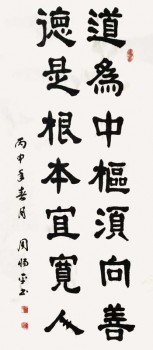 道為中樞須向善
德是根本宜寬人
丙申年春月
周
書